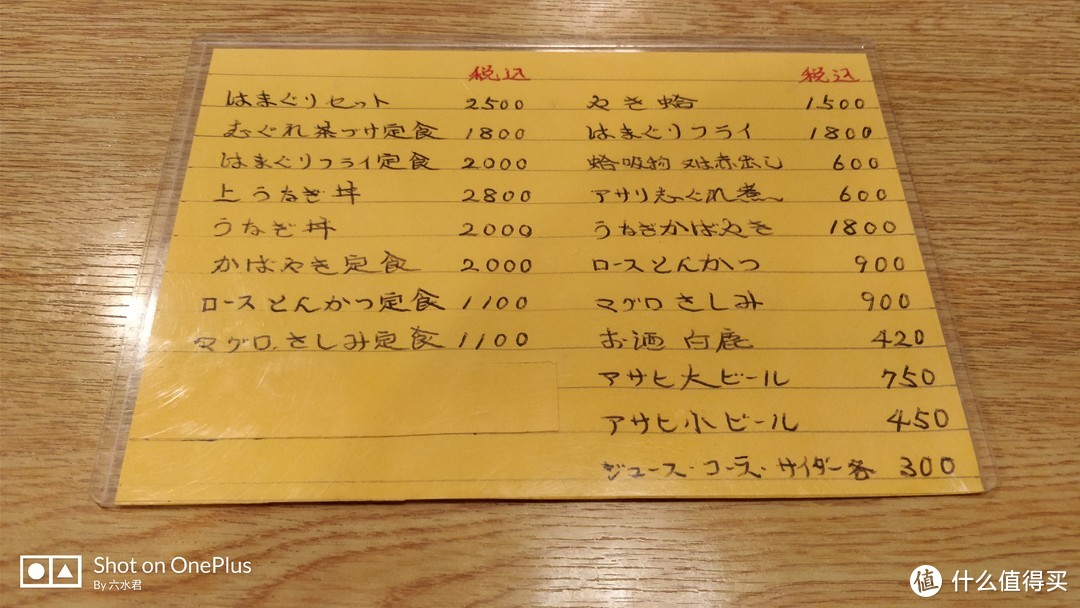 税込
はまぐりセット 2500
むぐれ茶づけ定食 1800
はまぐりフライ定食 2000
上うなぎ丼 2800
うなぎ丼 2000
かばやき定食 2000
ロースとんかつ定食 1100
マグロさしみ定食 1100
税込
やき蛤 1500
はまぐりフライ 1800
蛤吸物 又は赤出し 600
アサリ志ぐれ煮 600
うなぎかばやき 1800
ロースとんかつ 900
マグロさしみ 900
お酒 白鹿 420
アサヒ大ビール 750
アサヒ小ビール 450
ジュース・コーラ・サイダー各 300
Shot on OnePlus
By 六水君
值 什么值得买